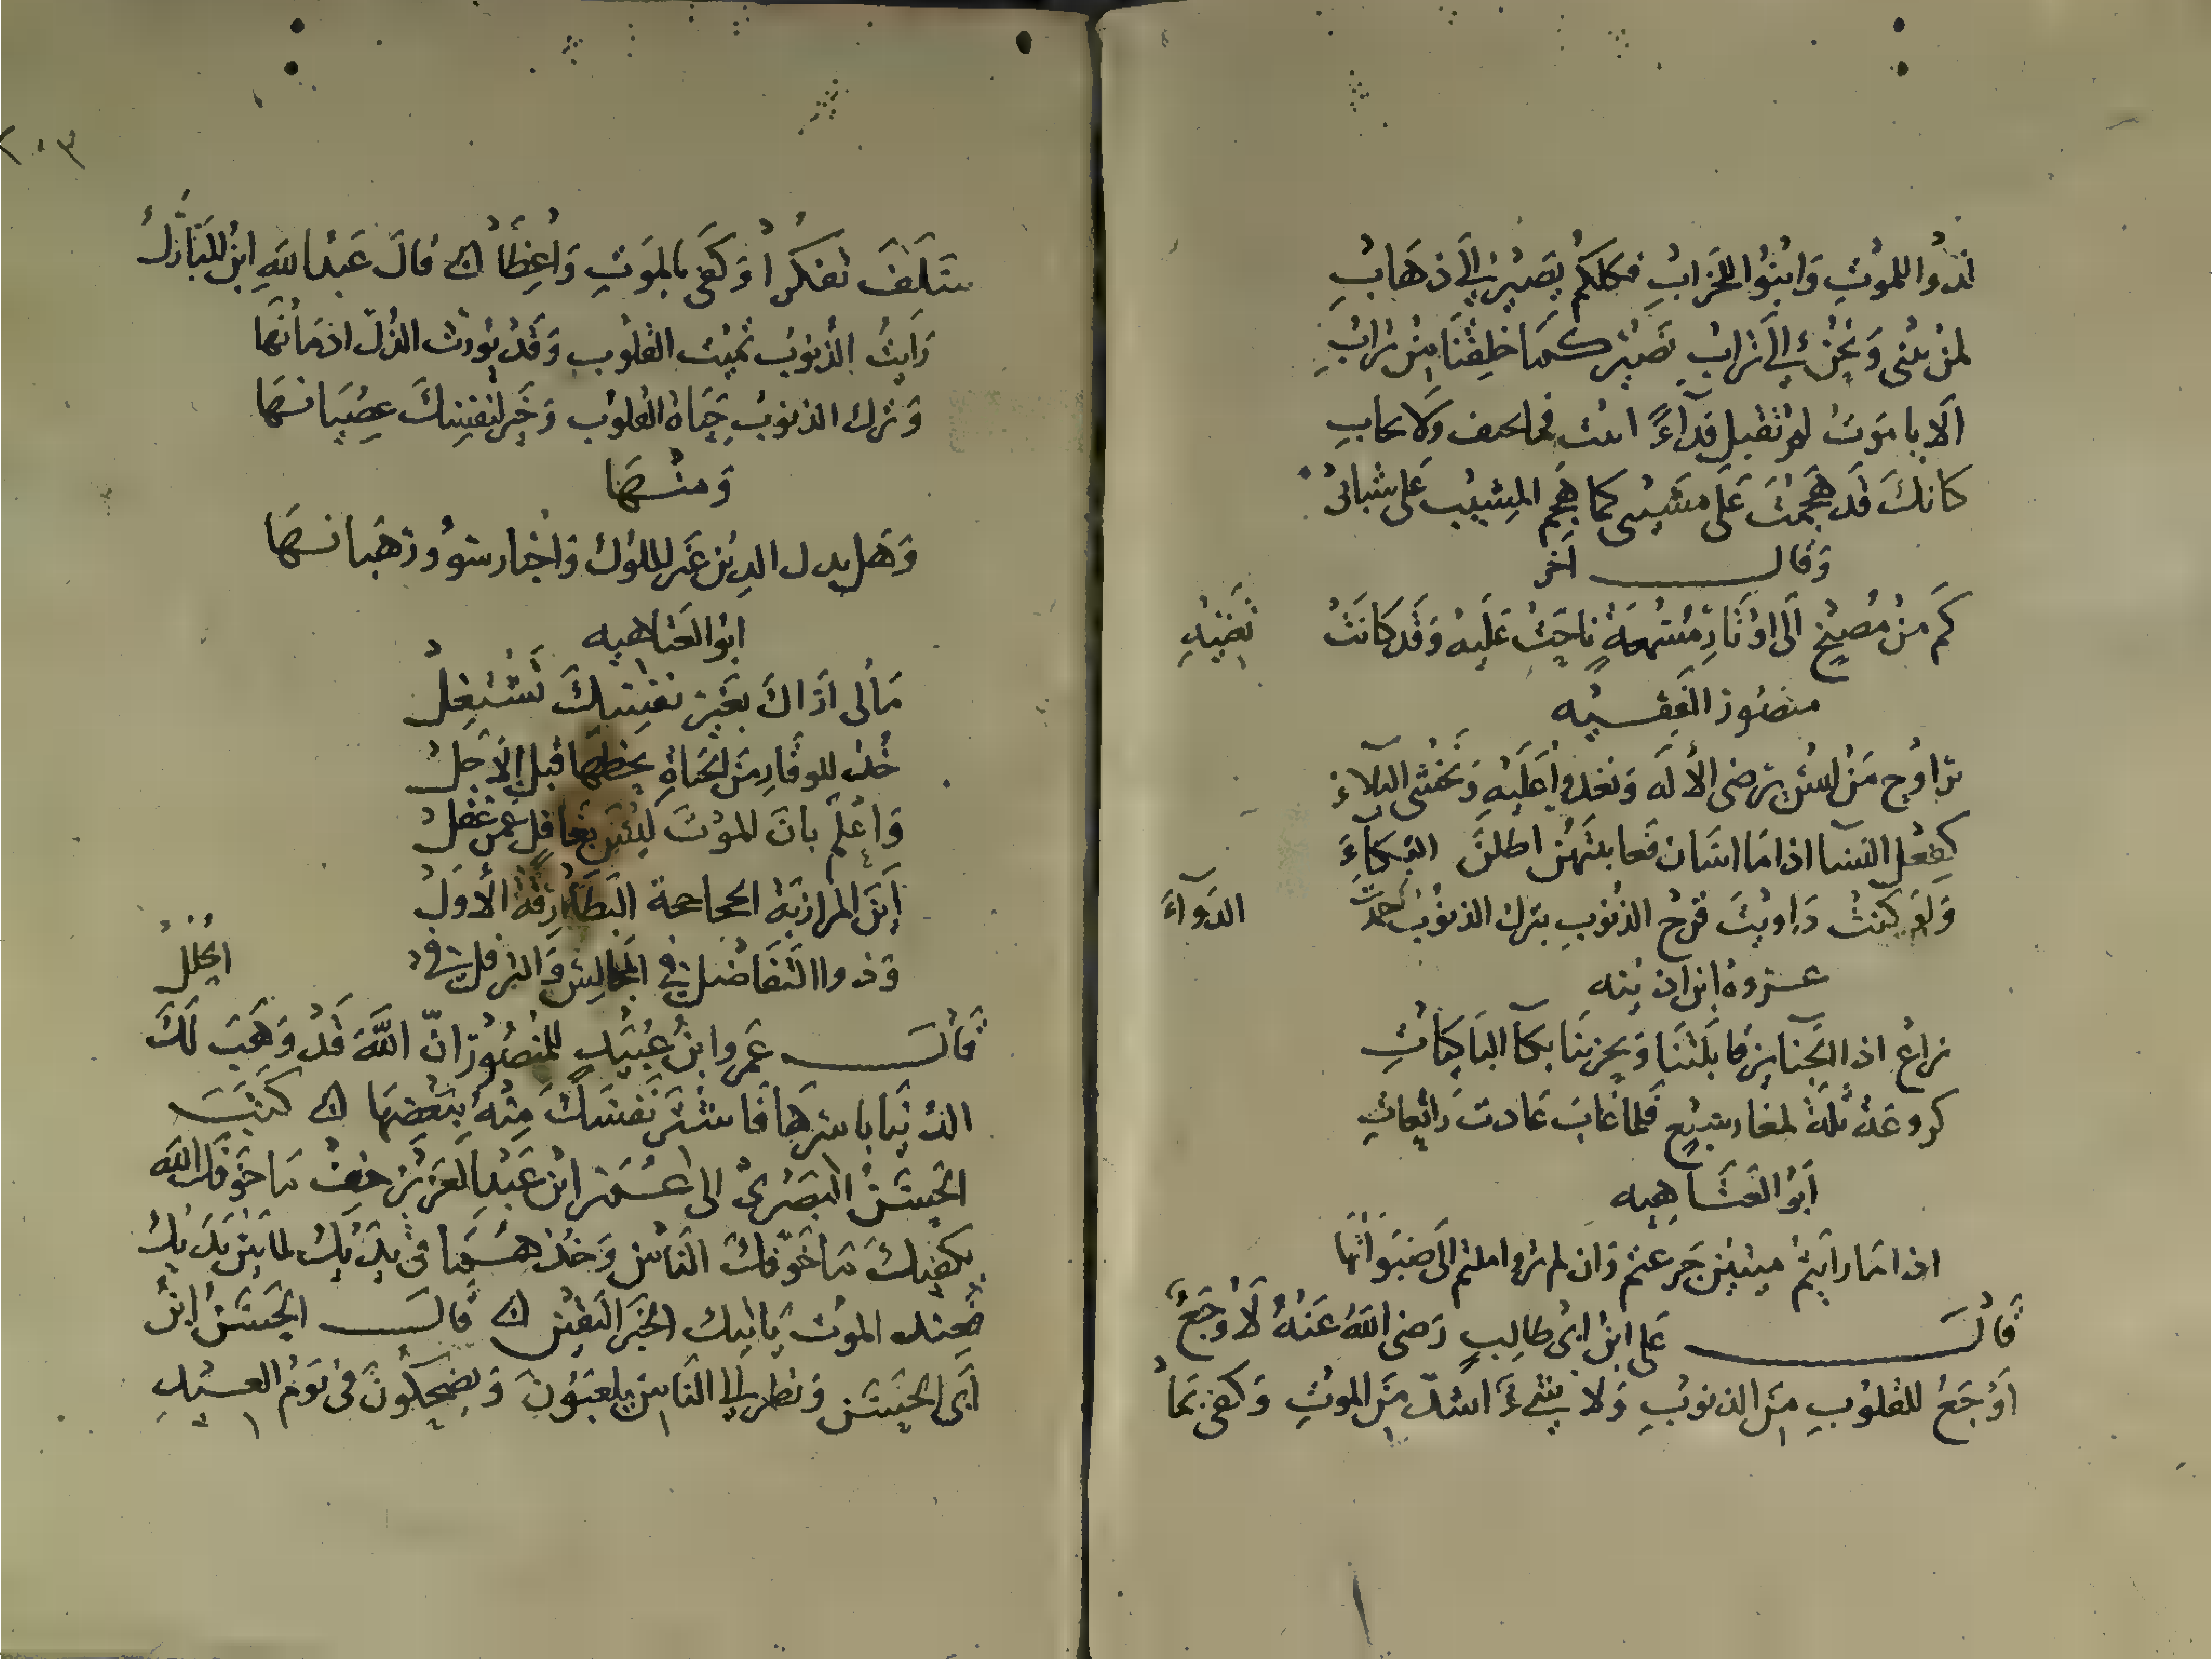 لدوا للموت وابنوا للخراب فكلكم يصير إلى ذهاب
لمن نبنى ونحن إلى تراب نصير كما خلقنا من تراب
ألا يا موت لم تقبل فداءً اتيت فما تحيف ولا تحابي
كانك قد هجمت على مشيبى كما هجم المشيب على شبابى
وقال آخر
كم من مصيخ الى اوتار مسمعة ناحت عليه وقد كانت تغنيه
منصور الفقيه
تراوح من ليس يرضى الاله وتغدوا عليه وتخشى البلاء
كفعل النسا اذا ما اسان فعاتبتهن اطلن البكاء
ولو كنت داويت قرح الذنوب بترك الذنوب حمدت الدواء
عروة ابن اذينه
نراع اذا الجنايز قابلتنا ويحزننا بكا الباكيات
كروعة ثلة لمغار سبع فلما غاب عادت راتعات
أبو العتاهيه
اذا ما رايتم ميتين جزعتم وان لم تروا ملتم الى صبواتها
قال على ابن ابى طالب رضى الله عنه لا وجع
أوجع للقلوب من الذنوب ولا شيء اشد من الموت وكفى بما
٢٠٣
سلف تفكرا وكفى بالموت واعظا قال عبد الله ابن المبارك
رايت الذنوب تميت القلوب وقد يورث الذل ادمانها
وترك الذنوب حياة القلوب وخير لنفسك عصيانها
ومنها
وهل بدل الدين غير الملوك واحبار سوء ورهبانها
ابو العتاهيه
ما لى اراك بغير نفسك تشتغل
خذ للوفاة من الحياة بحظها قبل الأجل
واعلم بان الموت ليس بغافل عمن غفل
أين المرازبة الجحاجحة البطارقة الأول
وذووا التفاضل فى المجالس والترفل فى الحلل
قال عمرو ابن عبيد للمنصور انّ الله قد وهب لك
الدنيا باسرها فاشتر نفسك منه ببعضها كتب
الحسن البصرى الى عمر ابن عبد العزيز خف ما خوفك الله
يكفيك ما خوفك الناس وخذ مما فى يديك لما بين يديك
فعند الموت يأتيك الخبر اليقين قال الحسن ابن
أبى الحسن ونظر إلى الناس يلعبون ويضحكون فى يوم العيد